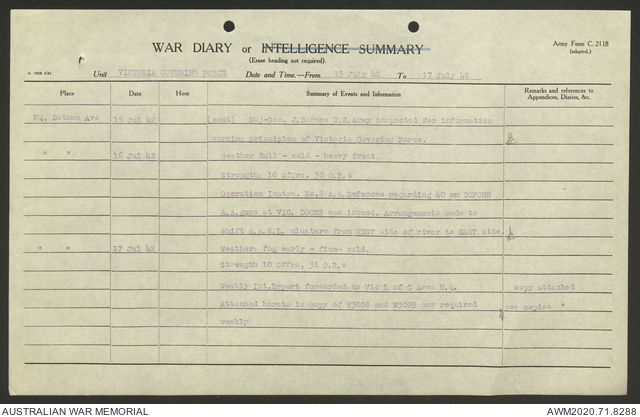 WAR DIARY or INTELLIGENCE SUMMARY
(Erase heading not required).
Army Form C. 2118
(adapted.)
Unit VICTORIA COVERING FORCE Date and Time.—From 15 July 42 To 17 July 42
Place Date Hour Summary of Events and Information Remarks and references to Appendices, Diaries, &c.
HQ, Batman Ave 15 Jul 42 (cont) Maj-Gen. J. U.S.Army inspected for information
working principles of Victoria Covering Force.
" " 16 Jul 42 Weather dull - cold - heavy frost.
Strength: 10 Offrs. 30 O.R.s
Operation Instrn. No.2 A.A.Defences regarding 40 mm BOFORS
A.A.guns at VIC. DOCKS was issued. Arrangements made to
shift A.A.S.L. clusters from WEST side of river to EAST side.
" " 17 Jul 42 Weather: fog early - fine- cold.
Strength 10 Offrs, 31 O.R.s
Weekly Int.Report forwarded to Vic L of C Area H.Q. copy attached
Attached hereto is copy of W3008 and W3009 now required see copies "
weekly
AUSTRALIAN WAR MEMORIAL
AWM2020.71.8288